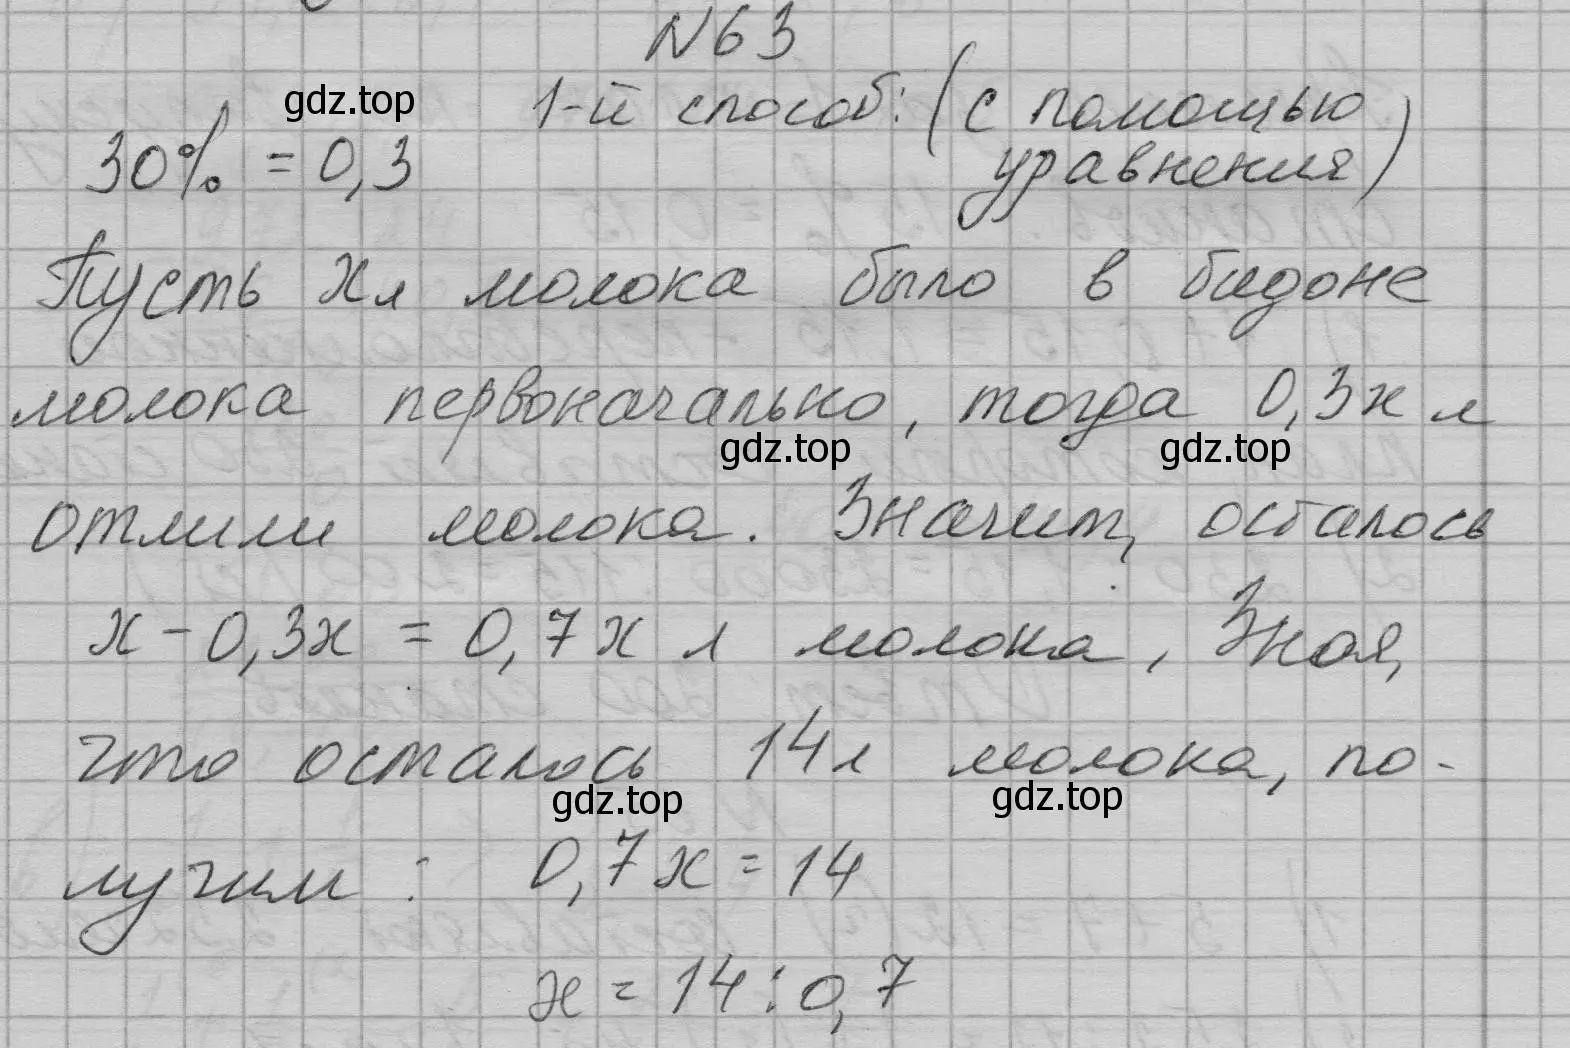 N63
gdz.top 1-й способ: (с помощью
30% = 0,3 уравнения)
Пусть x л молока было в бидоне
молока первоначально, тогда 0,3x л
gdz.top gdz.top
отлили молока. Значит, осталось
x - 0,3x = 0,7x л молока, Зная,
что осталось 14л молока, по-
gdz.top gdz.top
лучим: 0,7x = 14
x = 14 : 0,7